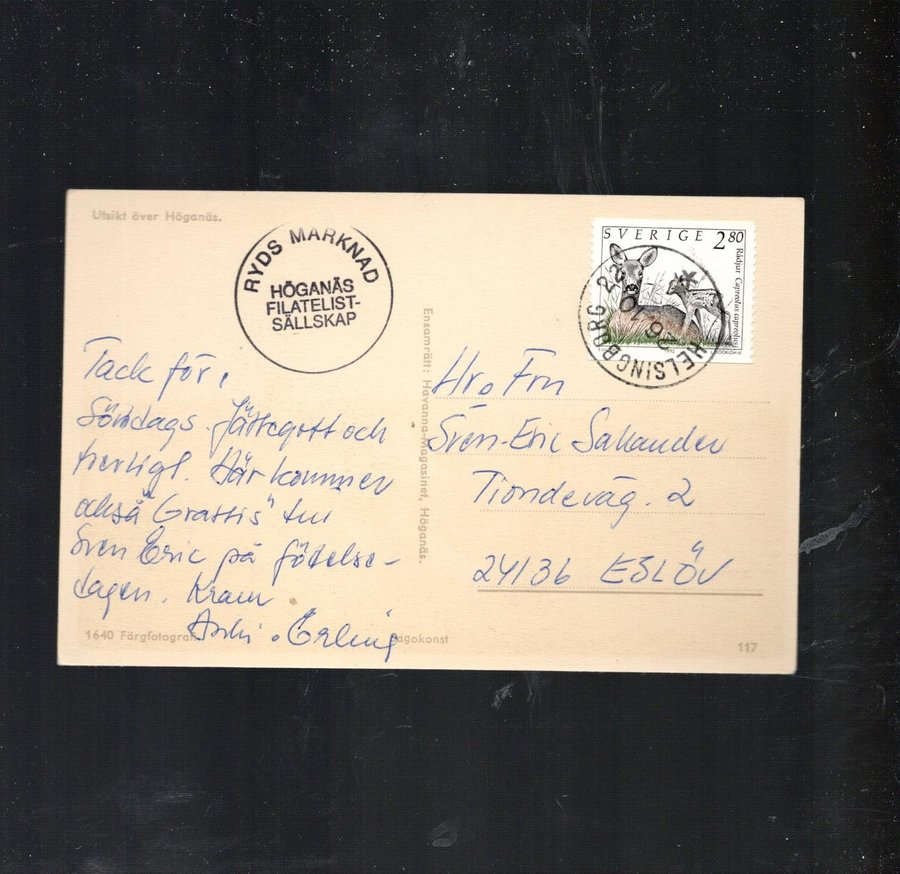 Utsikt över Höganäs.
RYDS MARKNAD
HÖGANÄS
FILATELIST-
SÄLLSKAP
Tack för i
Söndags. Jättegott och
trevligt. Här kommer
också "Grattis" till
Sven Eric på födelse-
dagen. Kram
Erling
1640 Färgfotografi
Sagokonst
Ensamrätt: Havanna-Magasinet, Höganäs.
SVERIGE 2 80
Rådjur Capreolus capreolus
HELSINGBORG 22
Hr o Fru
Sven-Eric Sallander
Tiondeväg. 2
24136 ESLÖV
117